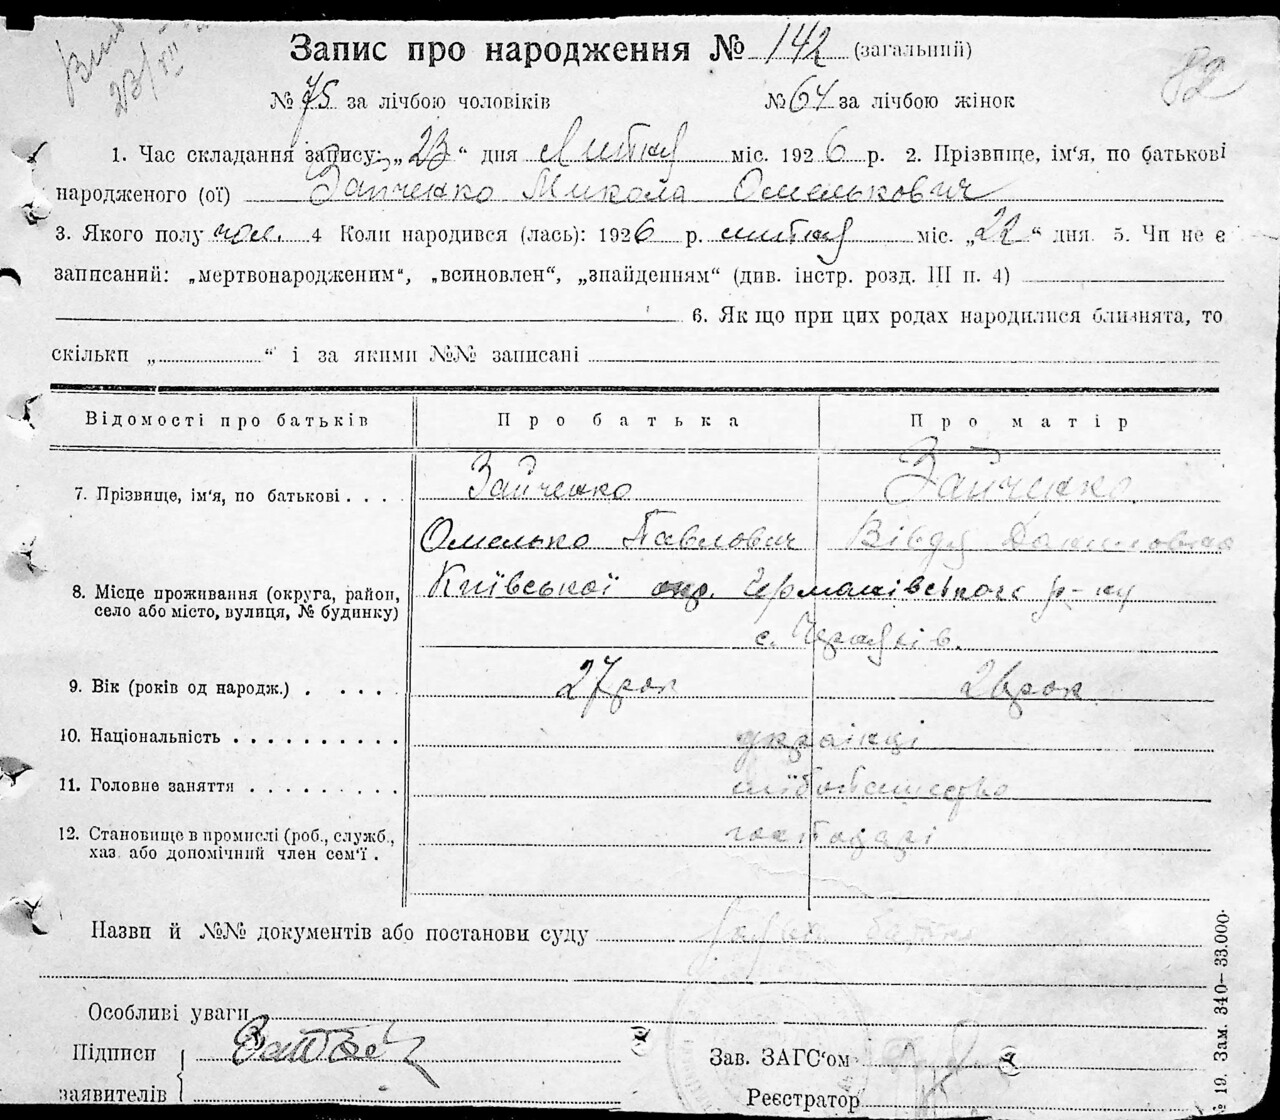 Запис про народження № 142 (загальний) 82
№ 75 за лічбою чоловіків № 64 за лічбою жінок
1. Час складання запису: „23“ дня липня міс. 1926 р. 2. Прізвище, ім'я, по батькові
народженого (ої) Зайченко Микола Омелькович
3. Якого полу чол. 4 Коли народився (лась): 1926 р. липня міс. „22“ дня. 5. Чи не є
записаний: „мертвонародженим“, „всиновлен“, „знайденням“ (див. інстр. розд. III п. 4)
6. Як що при цих родах народилися близнята, то
скільки „ “ і за якими №№ записані
Відомості про батьків Про батька Про матір
7. Прізвище, ім'я, по батькові . . . . Зайченко Зайченко
Омелько Павлович Вівдя Даниловна
8. Місце проживання (округа, район, село або місто, вулиця, № будинку) Київської окр. Германівського р-ну
с.
9. Вік (років од народж.) . . . . . 27 рок 26 рок
10. Національність . . . . . . . . . . українці
11. Головне заняття . . . . . . . . . хліборобство
12. Становище в промислі (роб., служб., хаз. або допомічний член сем'ї . господарі
Назви й №№ документів або постанови суду
Особливі уваги
Підписи
заявителів
Зав. ЗАГС'ом
Реєстратор
№ 19. Зам. 340–33.000.